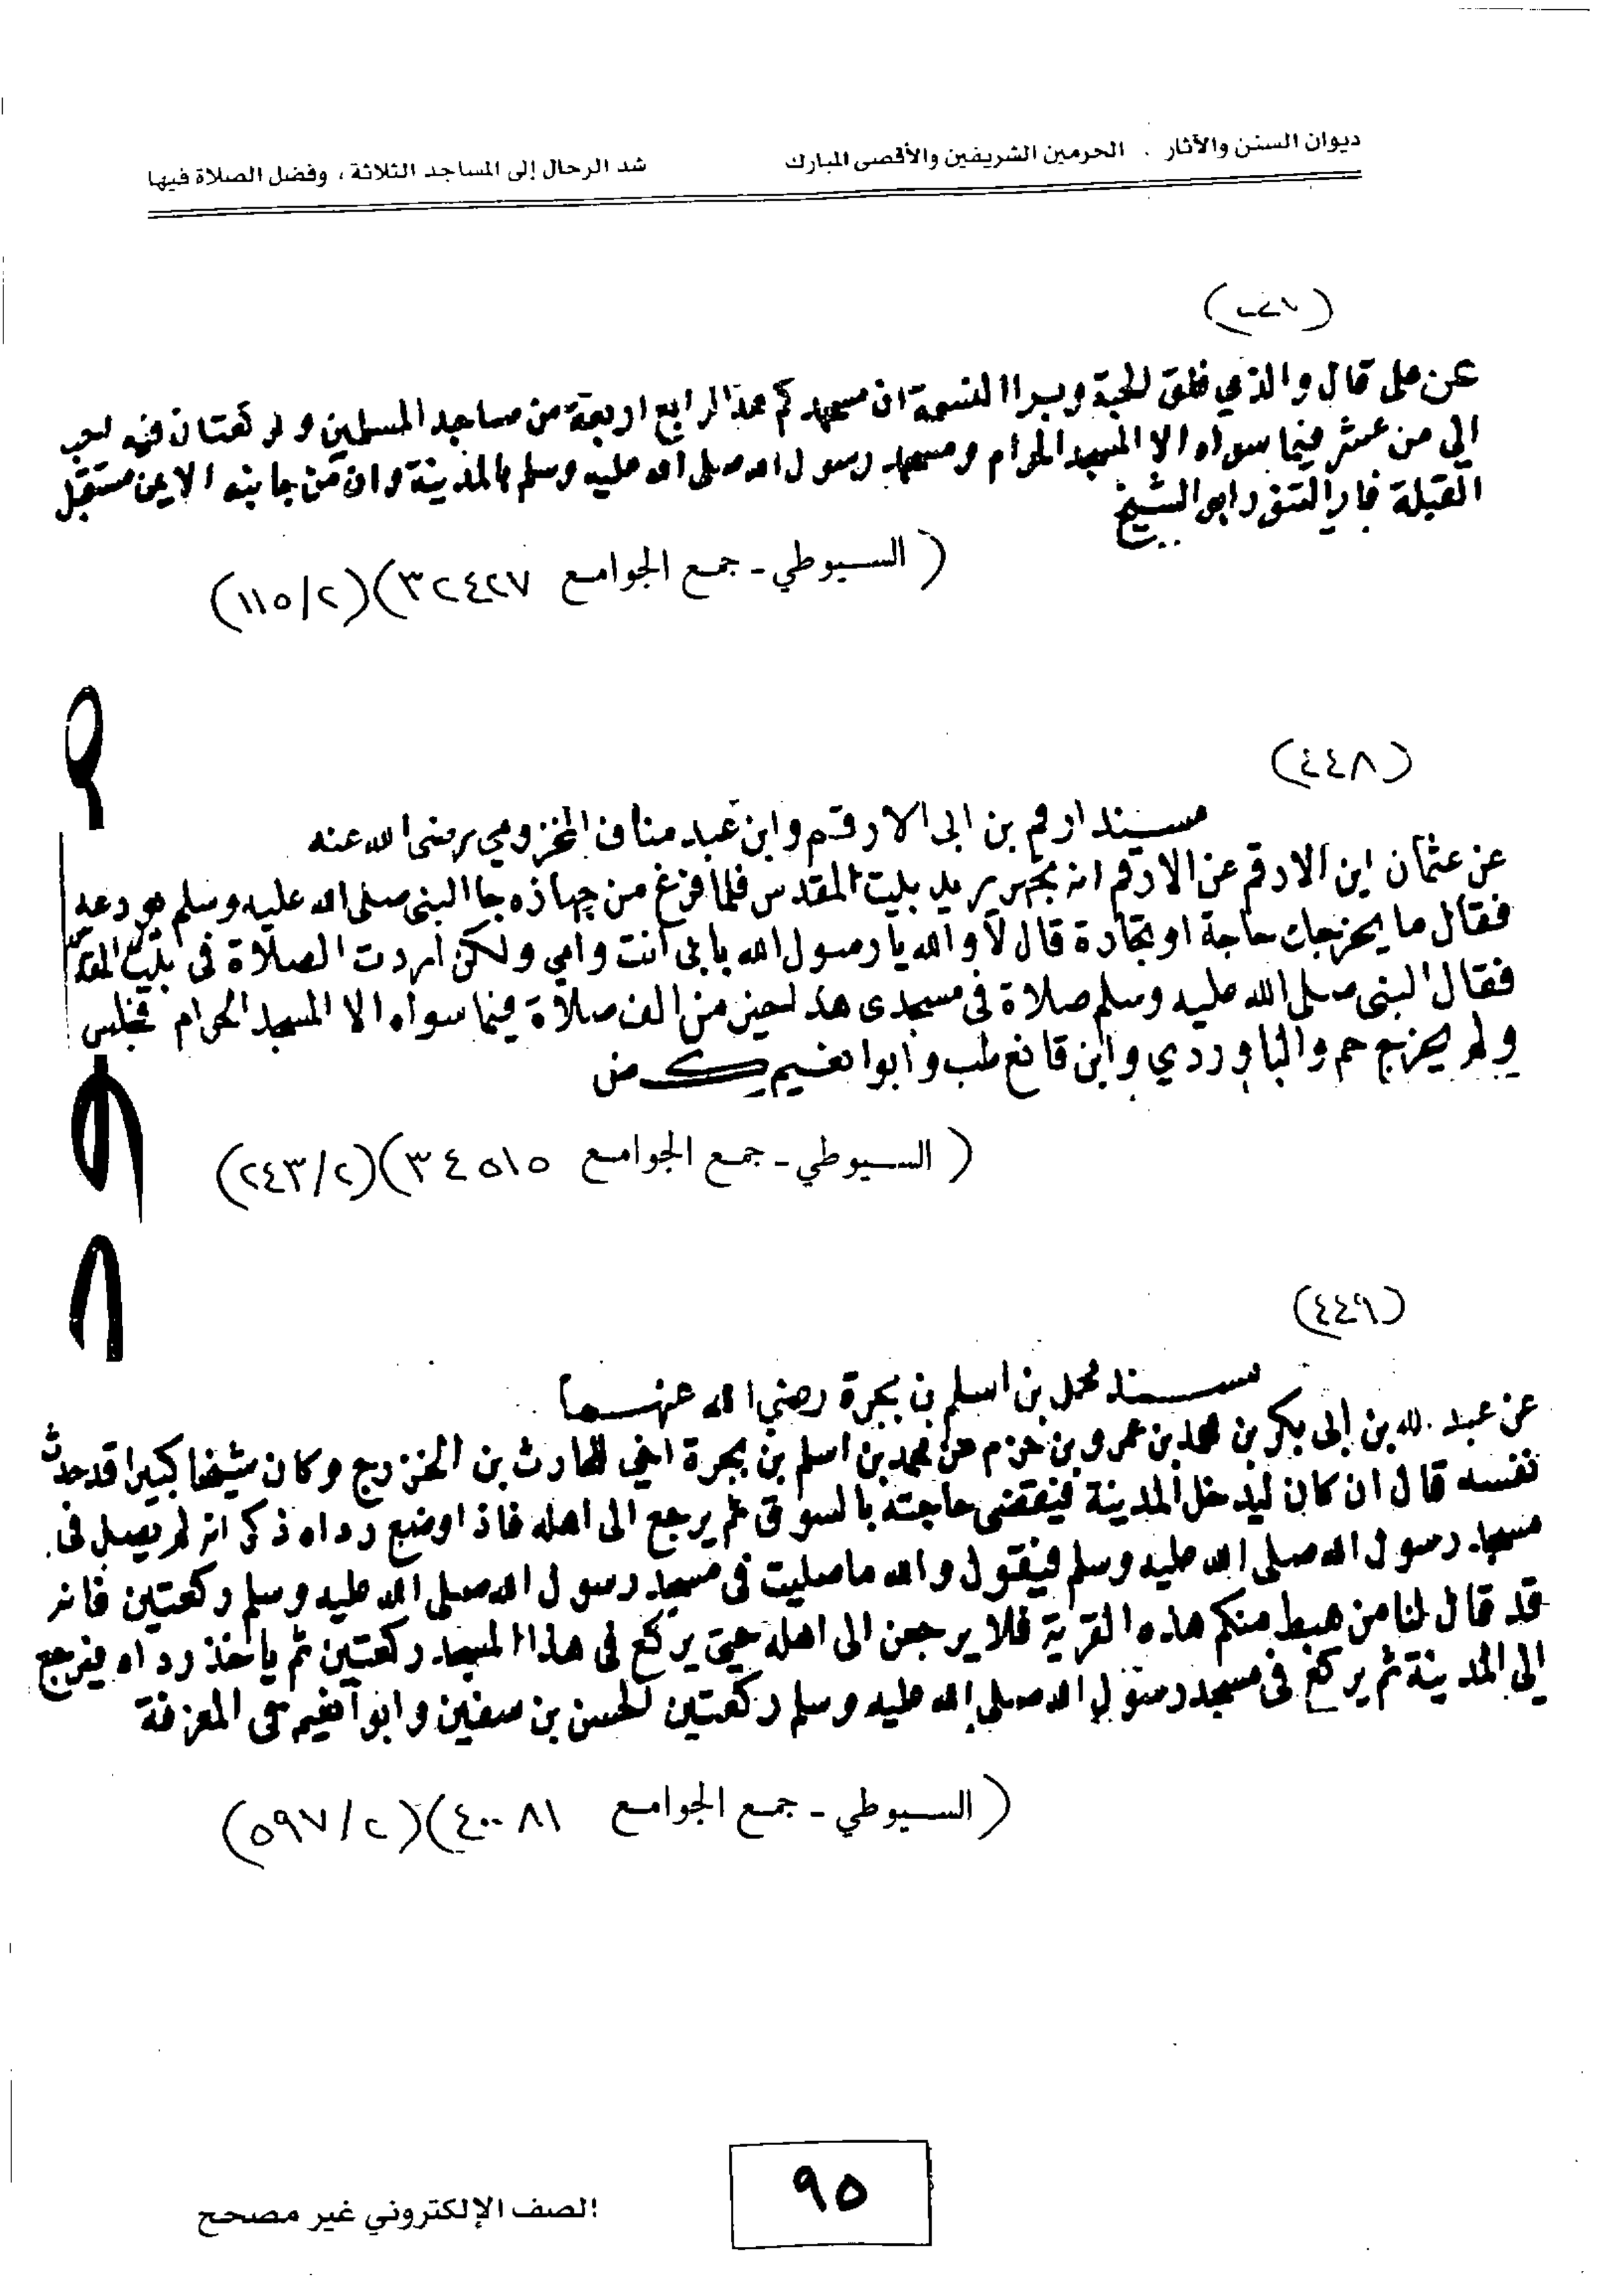 ديوان السنن والآثار . الحرمين الشريفين والأقصى المبارك شد الرحال إلى المساجد الثلاثة ، وفضل الصلاة فيها
عن على قال والذي فلق الحبة وبرا النسمة ان مسجدكم هذا الرابع اربعة من مساجد المسلمين ولركعتان فيه احب
الي من عشر فيما سواه الا المسجد الحرام ومسجد رسول الله صلى الله عليه وسلم بالمدينة وان من جانبه الايمن مستقبل
القبلة فار التنور ابو الشيخ
( السيوطي - جمع الجوامع ٣٢٤٢٧) (١١٥/٢)
(٤٤٨)
مسند ارقم بن ابى الارقم وابن عبد مناف المخزومي رضى الله عنه
عن عثمان ابن الارقم عن الارقم انه تجهز يريد بيت المقدس فلما فرغ من جهازه جا النبى صلى الله عليه وسلم يودعه
فقال ما يخرجك حاجة او تجارة قال لا والله يا رسول الله بابى انت وامي ولكن اردت الصلاة فى بيت المقدس
فقال النبى صلى الله عليه وسلم صلاة فى مسجدى هذا خير من الف صلاة فيما سواه الا المسجد الحرام فجلس
ولم يخرج حم والباوردي وابن قانع طب وابو نعيم ك ض
( السيوطي - جمع الجوامع ٣٤٥١٥) (٢٤٣/٢)
(٤٤٩)
مسند محمد بن اسلم بن بجرة رضي الله عنهما
عن عبد الله بن ابى بكر بن محمد بن عمرو بن حزم عن محمد بن اسلم بن بجرة اخي الحارث بن الخزرج وكان شيخا كبيرا قد حدث
نفسه قال ان كان ليدخل المدينة فيقضى حاجته بالسوق ثم يرجع الى اهله فاذا وضع رداه ذكر انه لم يصل فى
مسجد رسول الله صلى الله عليه وسلم فيقول والله ما صليت فى مسجد رسول الله صلى الله عليه وسلم ركعتين فانه
قد قال لنا من هبط منكم هذه القرية فلا يرجعن الى اهله حتى يركع فى هذا المسجد ركعتين ثم ياخذ رداه فيرجع
الى المدينة ثم يركع فى مسجد رسول الله صلى الله عليه وسلم ركعتين الحسن بن سفين وابو نعيم فى المعرفة
( السيوطي - جمع الجوامع ٤٠٠٨١) (٥٩٧/٢)
٩٥
الصف الإلكتروني غير مصحح